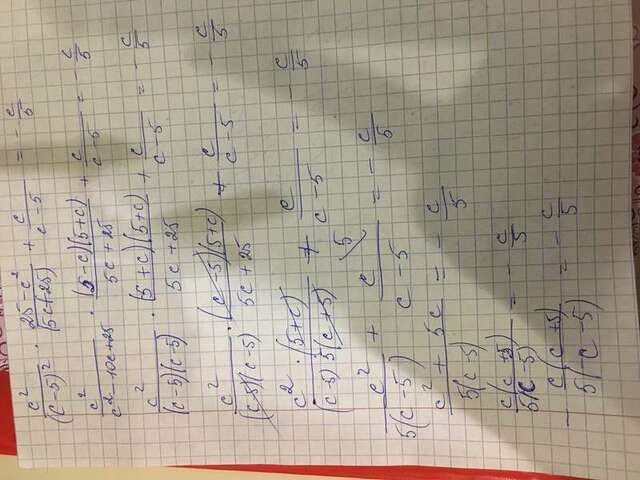 c²/(c-5)² · 25-c²/(5c+25) + c/c-5 = -c/5
c²/c²-10c+25 · (5-c)(5+c)/5c+25 + c/c-5 = -c/5
c²/(c-5)(c-5) · (5+c)(5+c)/5c+25 + c/c-5 = -c/5
c²/(c-5)(c-5) · (c-5)(5+c)/5c+25 + c/c-5 = -c/5
c²·(5+c)/(c-5)5(c+5) + c/c-5 = -c/5
c²/5(c-5) + c\5/c-5 = -c/5
c²+5c/5(c-5) = -c/5
c(c+5)/5(c-5) = -c/5
-c(c+5)/5(c-5) = -c/5